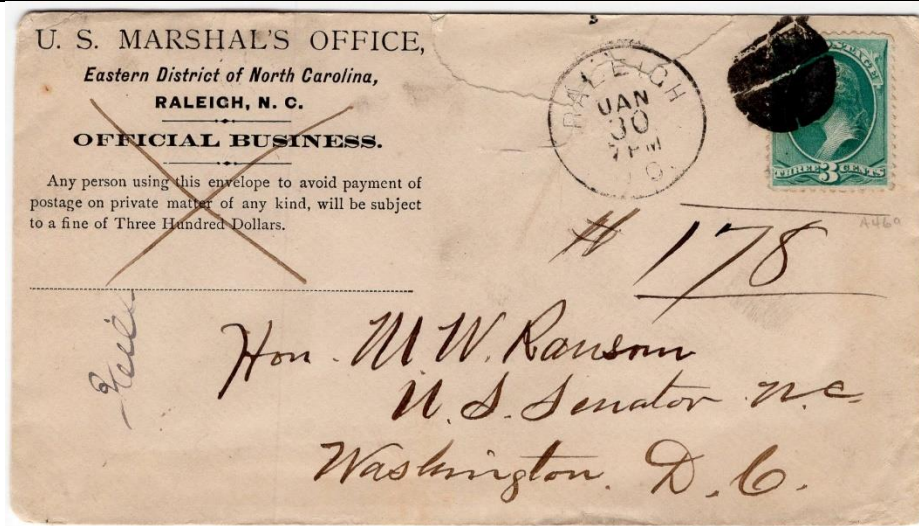 U. S. MARSHAL'S OFFICE,
Eastern District of North Carolina,
RALEIGH, N. C.
OFFICIAL BUSINESS.
Any person using this envelope to avoid payment of
postage on private matter of any kind, will be subject
to a fine of Three Hundred Dollars.
RALEIGH
JAN
30
7 PM
POSTAGE
THREE 3 CENTS
A460
# 178
Hon. M W. Ransom
U. S. Senator N.C.
Washington. D. C.